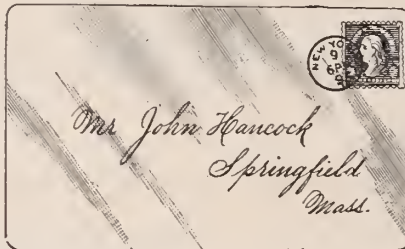 NEW YO
9
6P
Mr John Hancock
Springfield
Mass.